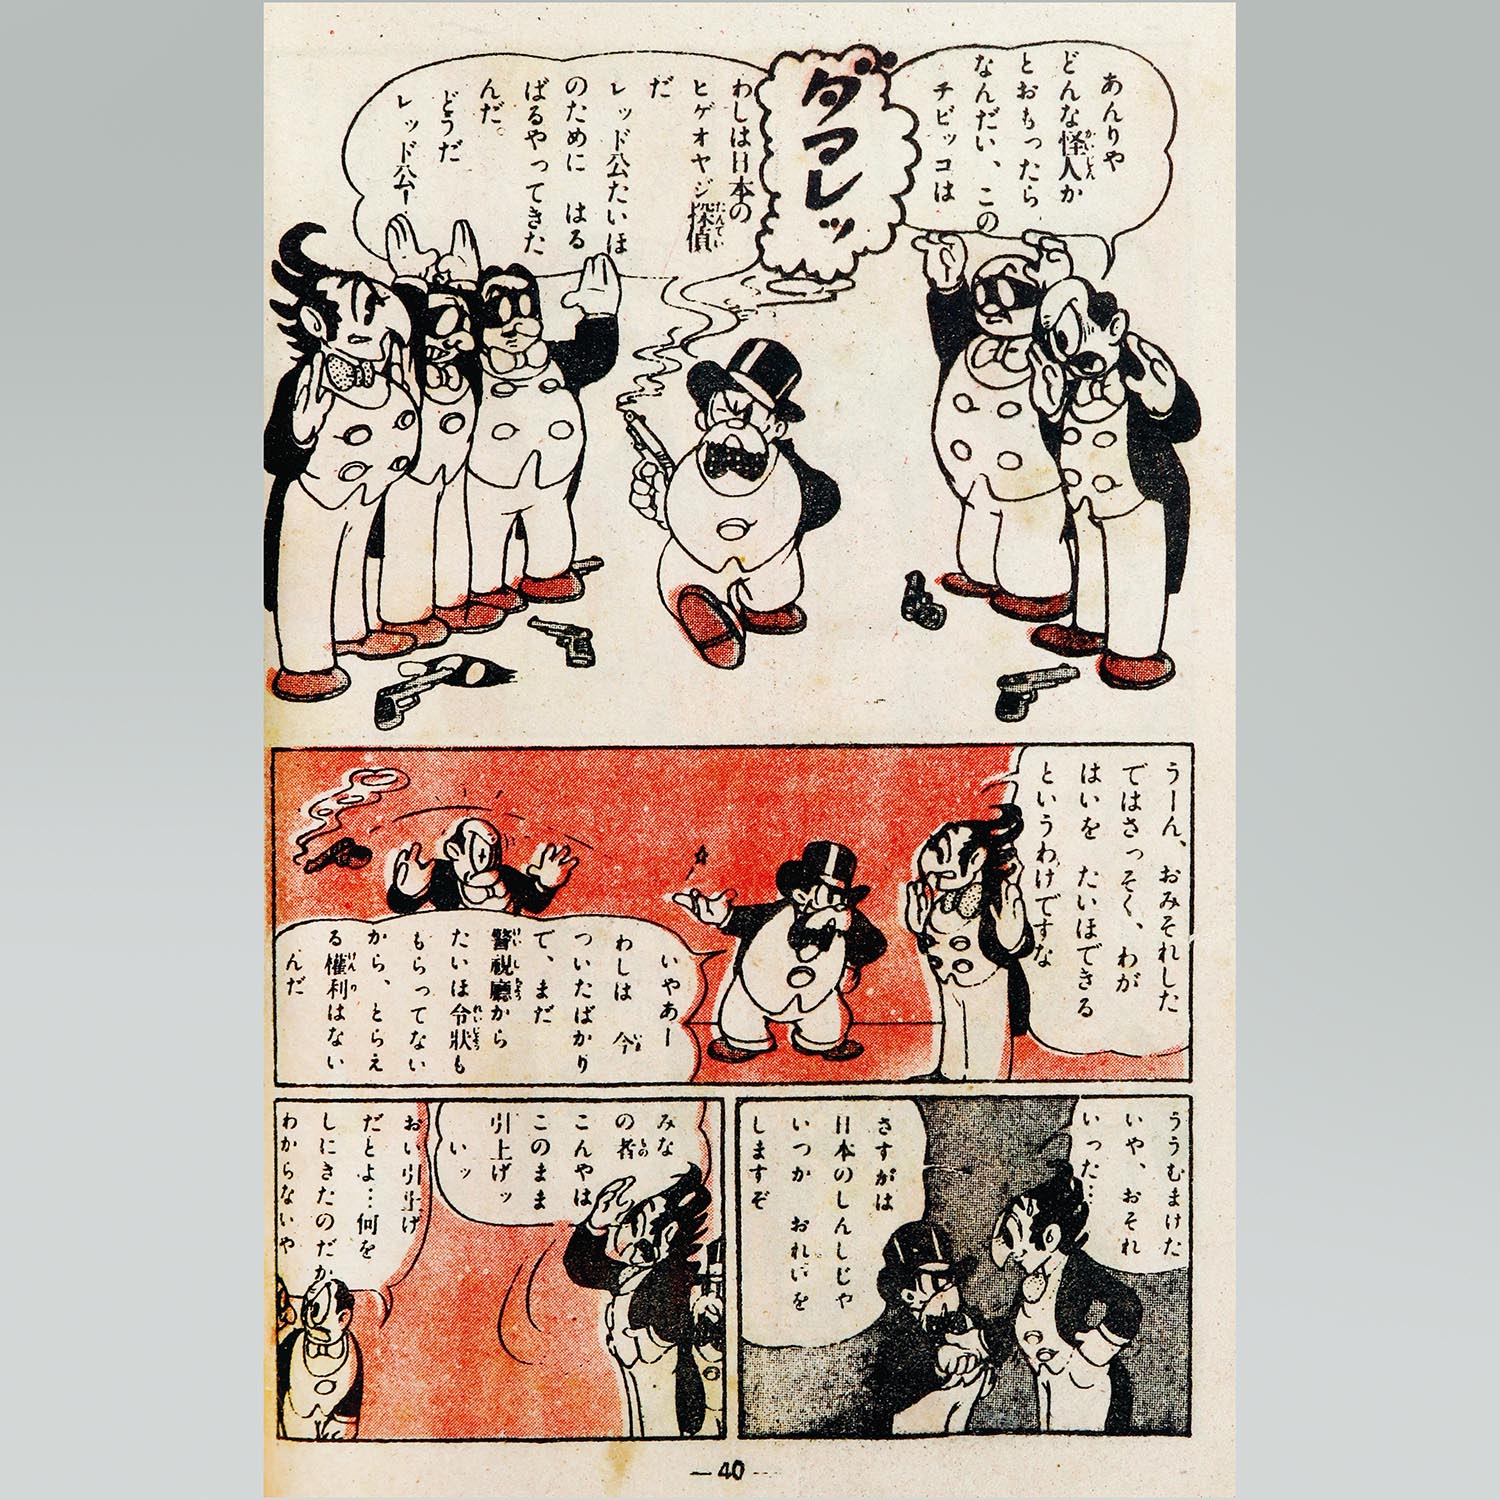 あんりや
どんな怪人か
とおもったら
なんだい、この
チビッコは
ダマレッ
わしは日本の
ヒゲオヤジ探偵
だ
レッド公たいほ
のために はる
ばるやってきた
んだ。
どうだ
レッド公!
うーん、おみそれした
ではさっそく、わが
はいを たいほできる
というわけですな
いやあー
わしは 今
ついたばかり
で、まだ
警視廳から
たいほ令狀も
もらってない
から、とらえ
る權利はない
んだ
ううむまけた
いや、おそれ
いった…
さすがは
日本のしんしじゃ
いつか おれいを
しますぞ
みな
の者
こんやは
このまま
引上げッ
いッ
おい引上げ
だとよ…何を
しにきたのだか
わからないや
—40—